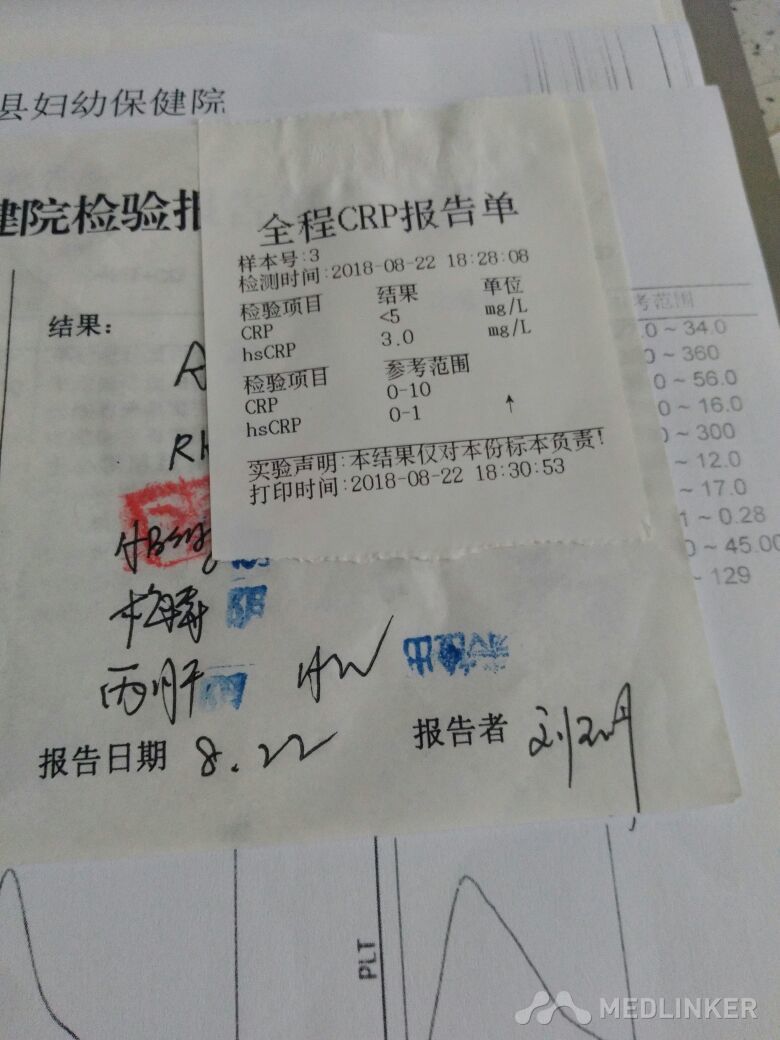 县妇幼保健院
健院检验报
全程CRP报告单
样本号:3
检测时间:2018-08-22 18:28:08
检验项目 结果 单位
CRP <5 mg/L
hsCRP 3.0 mg/L
检验项目 参考范围
CRP 0-10
hsCRP 0-1 ↑
实验声明:本结果仅对本份标本负责!
打印时间:2018-08-22 18:30:53
结果:
A
RH
梅毒
丙肝 HIV 未检出
报告日期 8.22 报告者
考范围
0 ~ 34.0
0 ~ 360
0 ~ 56.0
~ 16.0
~ 300
~ 12.0
~ 17.0
1 ~ 0.28
0 ~ 45.00
~ 129
PLT
MEDLINKER